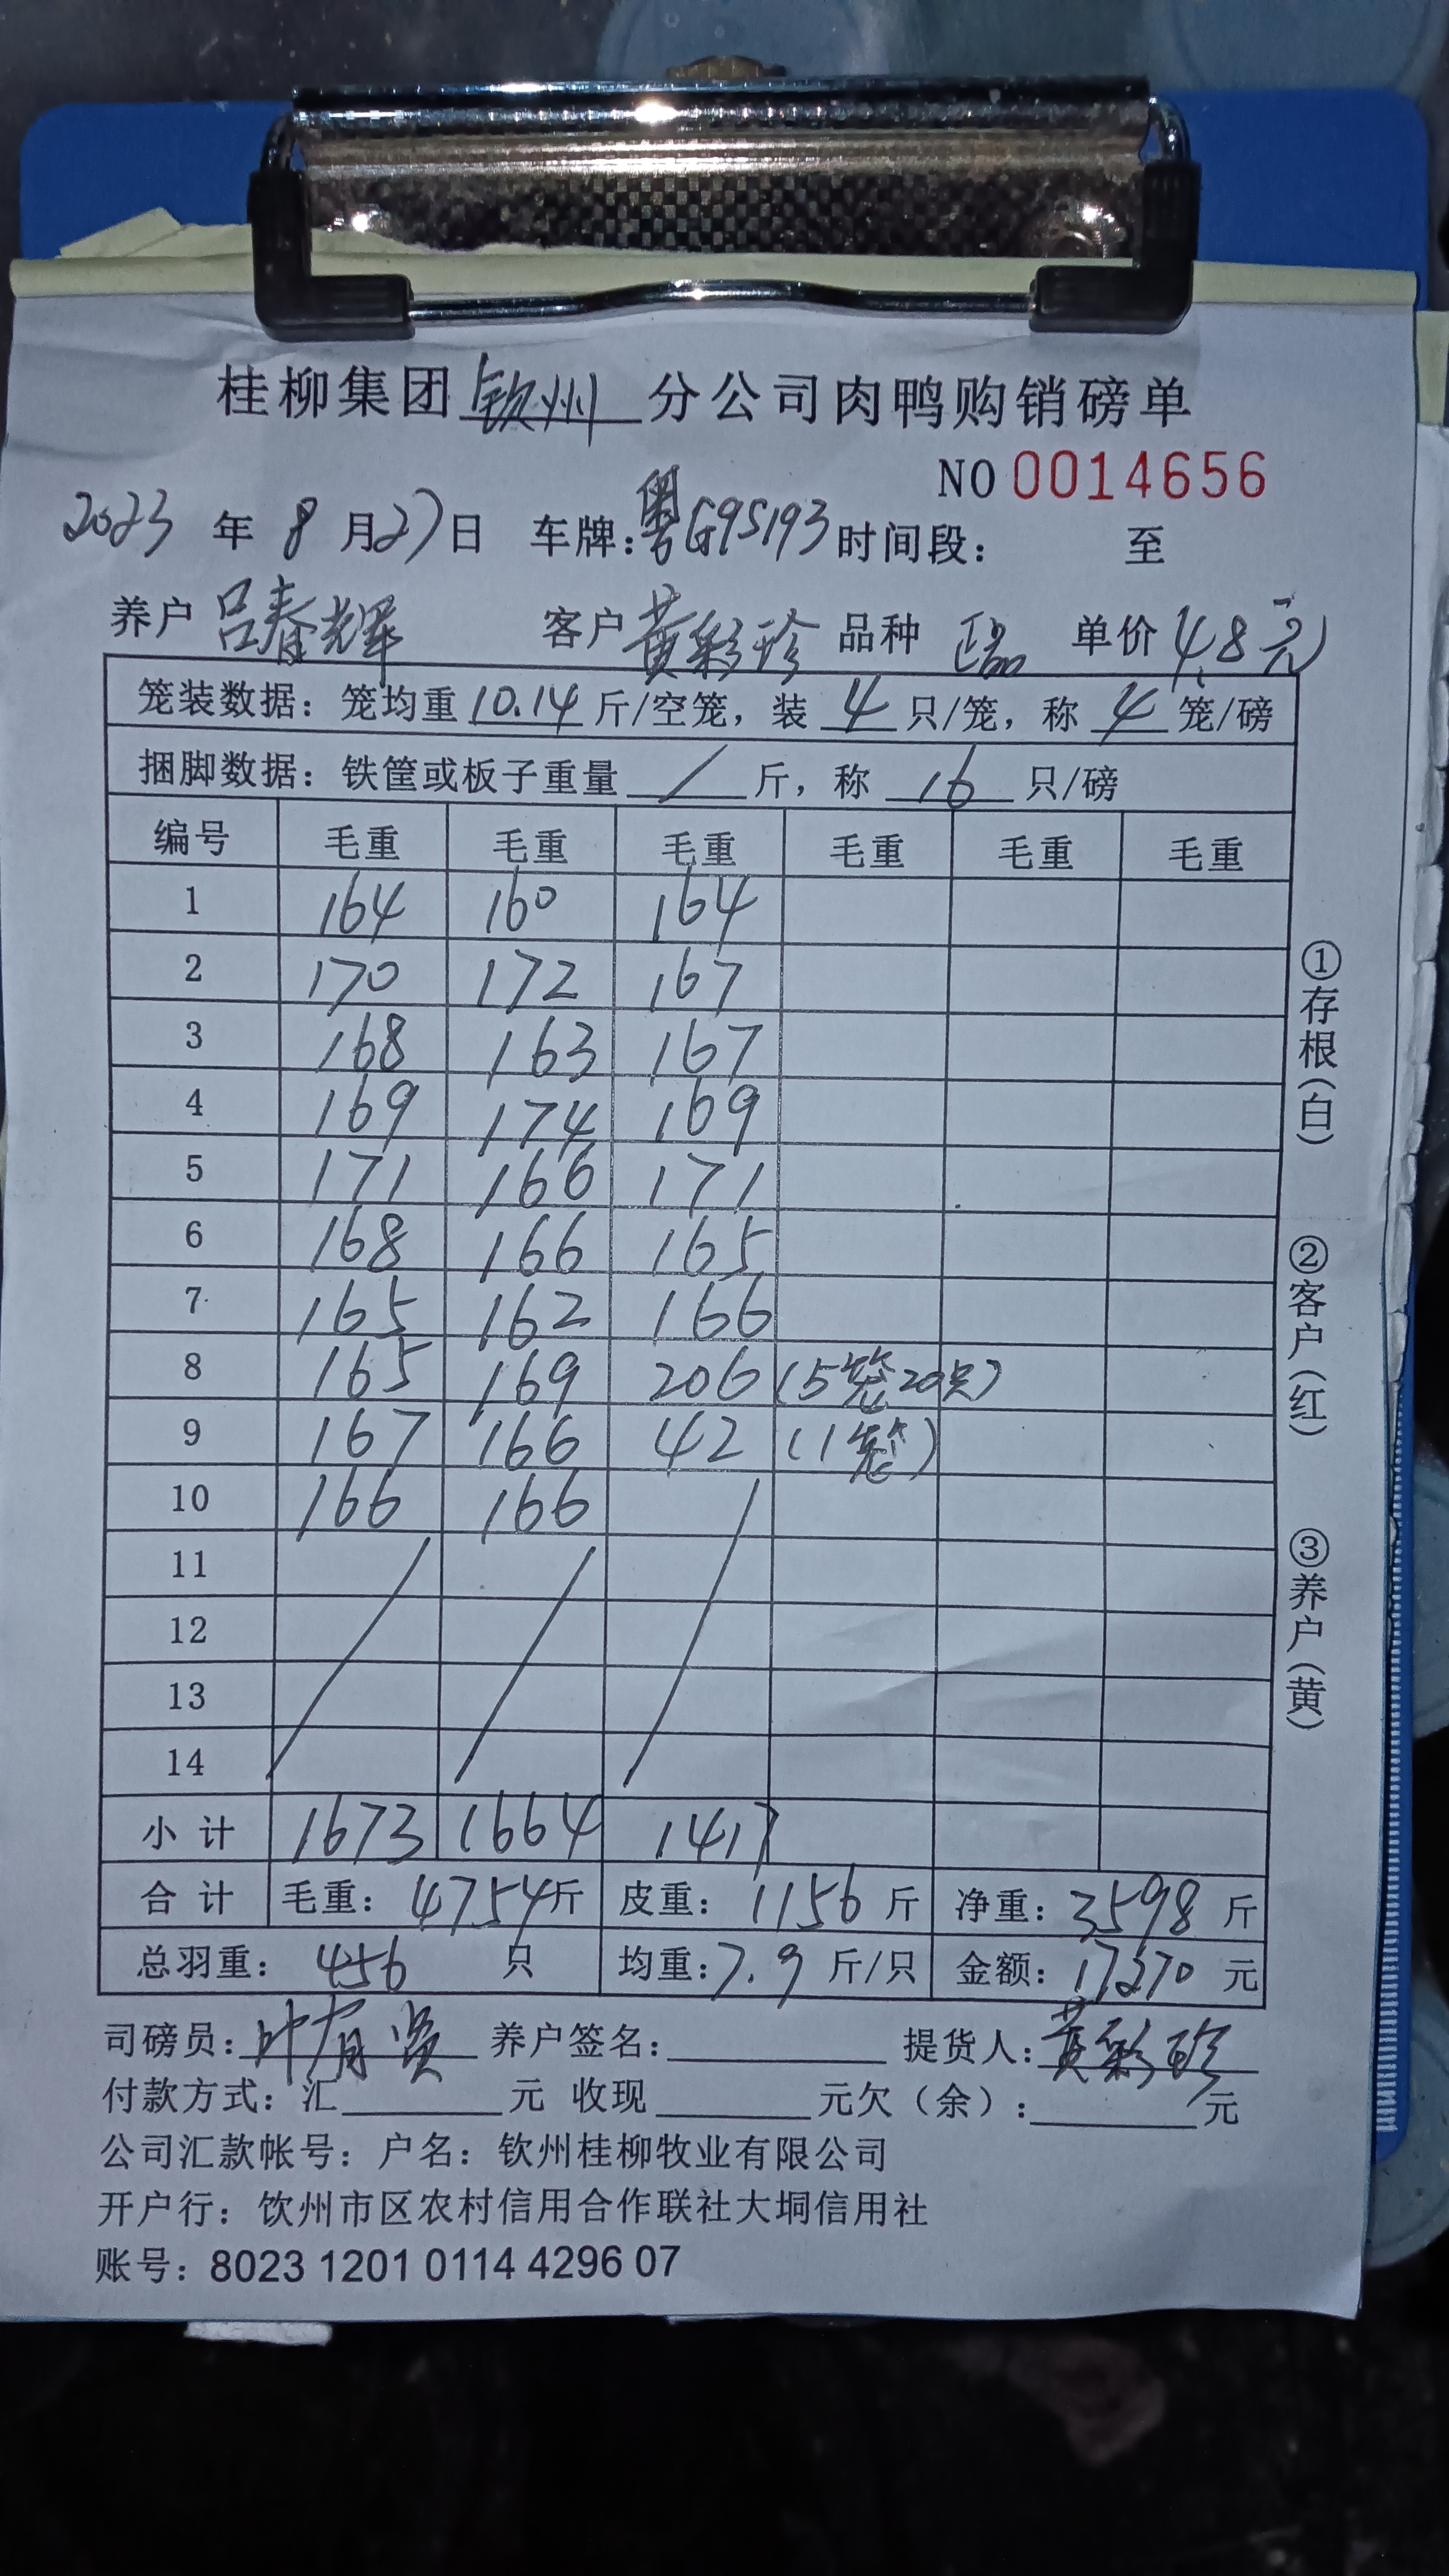 桂柳集团钦州分公司肉鸭购销磅单
NO 0014656
2023年8月27日 车牌:粤G95193时间段: 至
养户 吕春辉 客户 黄彩珍 品种 正品 单价 4.8元
笼装数据: 笼均重10.14斤/空笼, 装4只/笼, 称4笼/磅
捆脚数据: 铁筐或板子重量/斤, 称16只/磅
编号 毛重 毛重 毛重 毛重 毛重 毛重
1 164 160 164
2 170 172 167
3 168 163 167
4 169 174 169
5 171 166 171
6 168 166 165
7 165 162 166
8 165 169 206 (5笼20只)
9 167 166 42 (1笼)
10 166 166
11
12
13
14
小计 1673 1664 1417
合计 毛重: 4754斤 皮重: 1156斤 净重: 3598斤
总羽重: 456只 均重: 7.9斤/只 金额: 17270元
司磅员: 叶有贤 养户签名: 提货人: 黄彩珍
付款方式: 汇 元 收现 元欠(余): 元
公司汇款帐号: 户名: 钦州桂柳牧业有限公司
开户行: 饮州市区农村信用合作联社大垌信用社
账号: 8023 1201 0114 4296 07
①存根(白)
②客户(红)
③养户(黄)